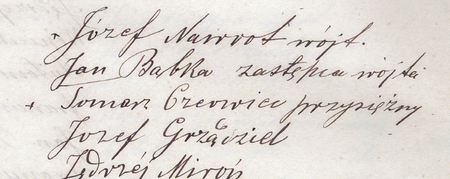 + Józef Nawrot wójt.
Jan Bąbka zastępca wójta
+ Tomasz Czerwiec przysiężny
Jozef Grządziel
Jędrzéj Miroń